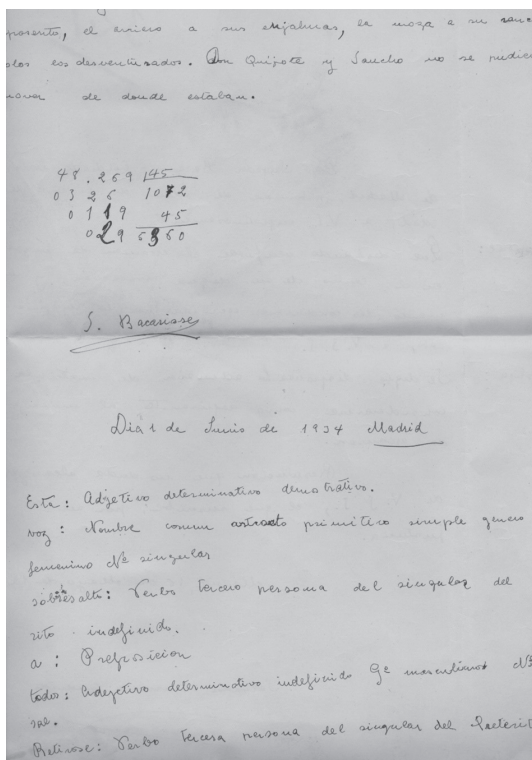 aposento, el arriero a sus enjalmas, la moza a su ranc
olos los desventurados. Don Quijote y Sancho no se pudier
mover de donde estaban.
48.269 |45
03 26 1072
0119 45
029 5360
S. Bacarisse
Dia 1 de Junio de 1934 Madrid
Esta: Adjetivo determinativo demostrativo.
voz: Nombre comun astracto primitivo simple genero
femenino Nº singular
sobresalto: Verbo tercero persona del singular del
rito indefinido.
a: Preposicion
todos: Adejetivo determinativo indefinido Gº masculino Nº
Retirose: Verbo tercera persona del singular del Preterit